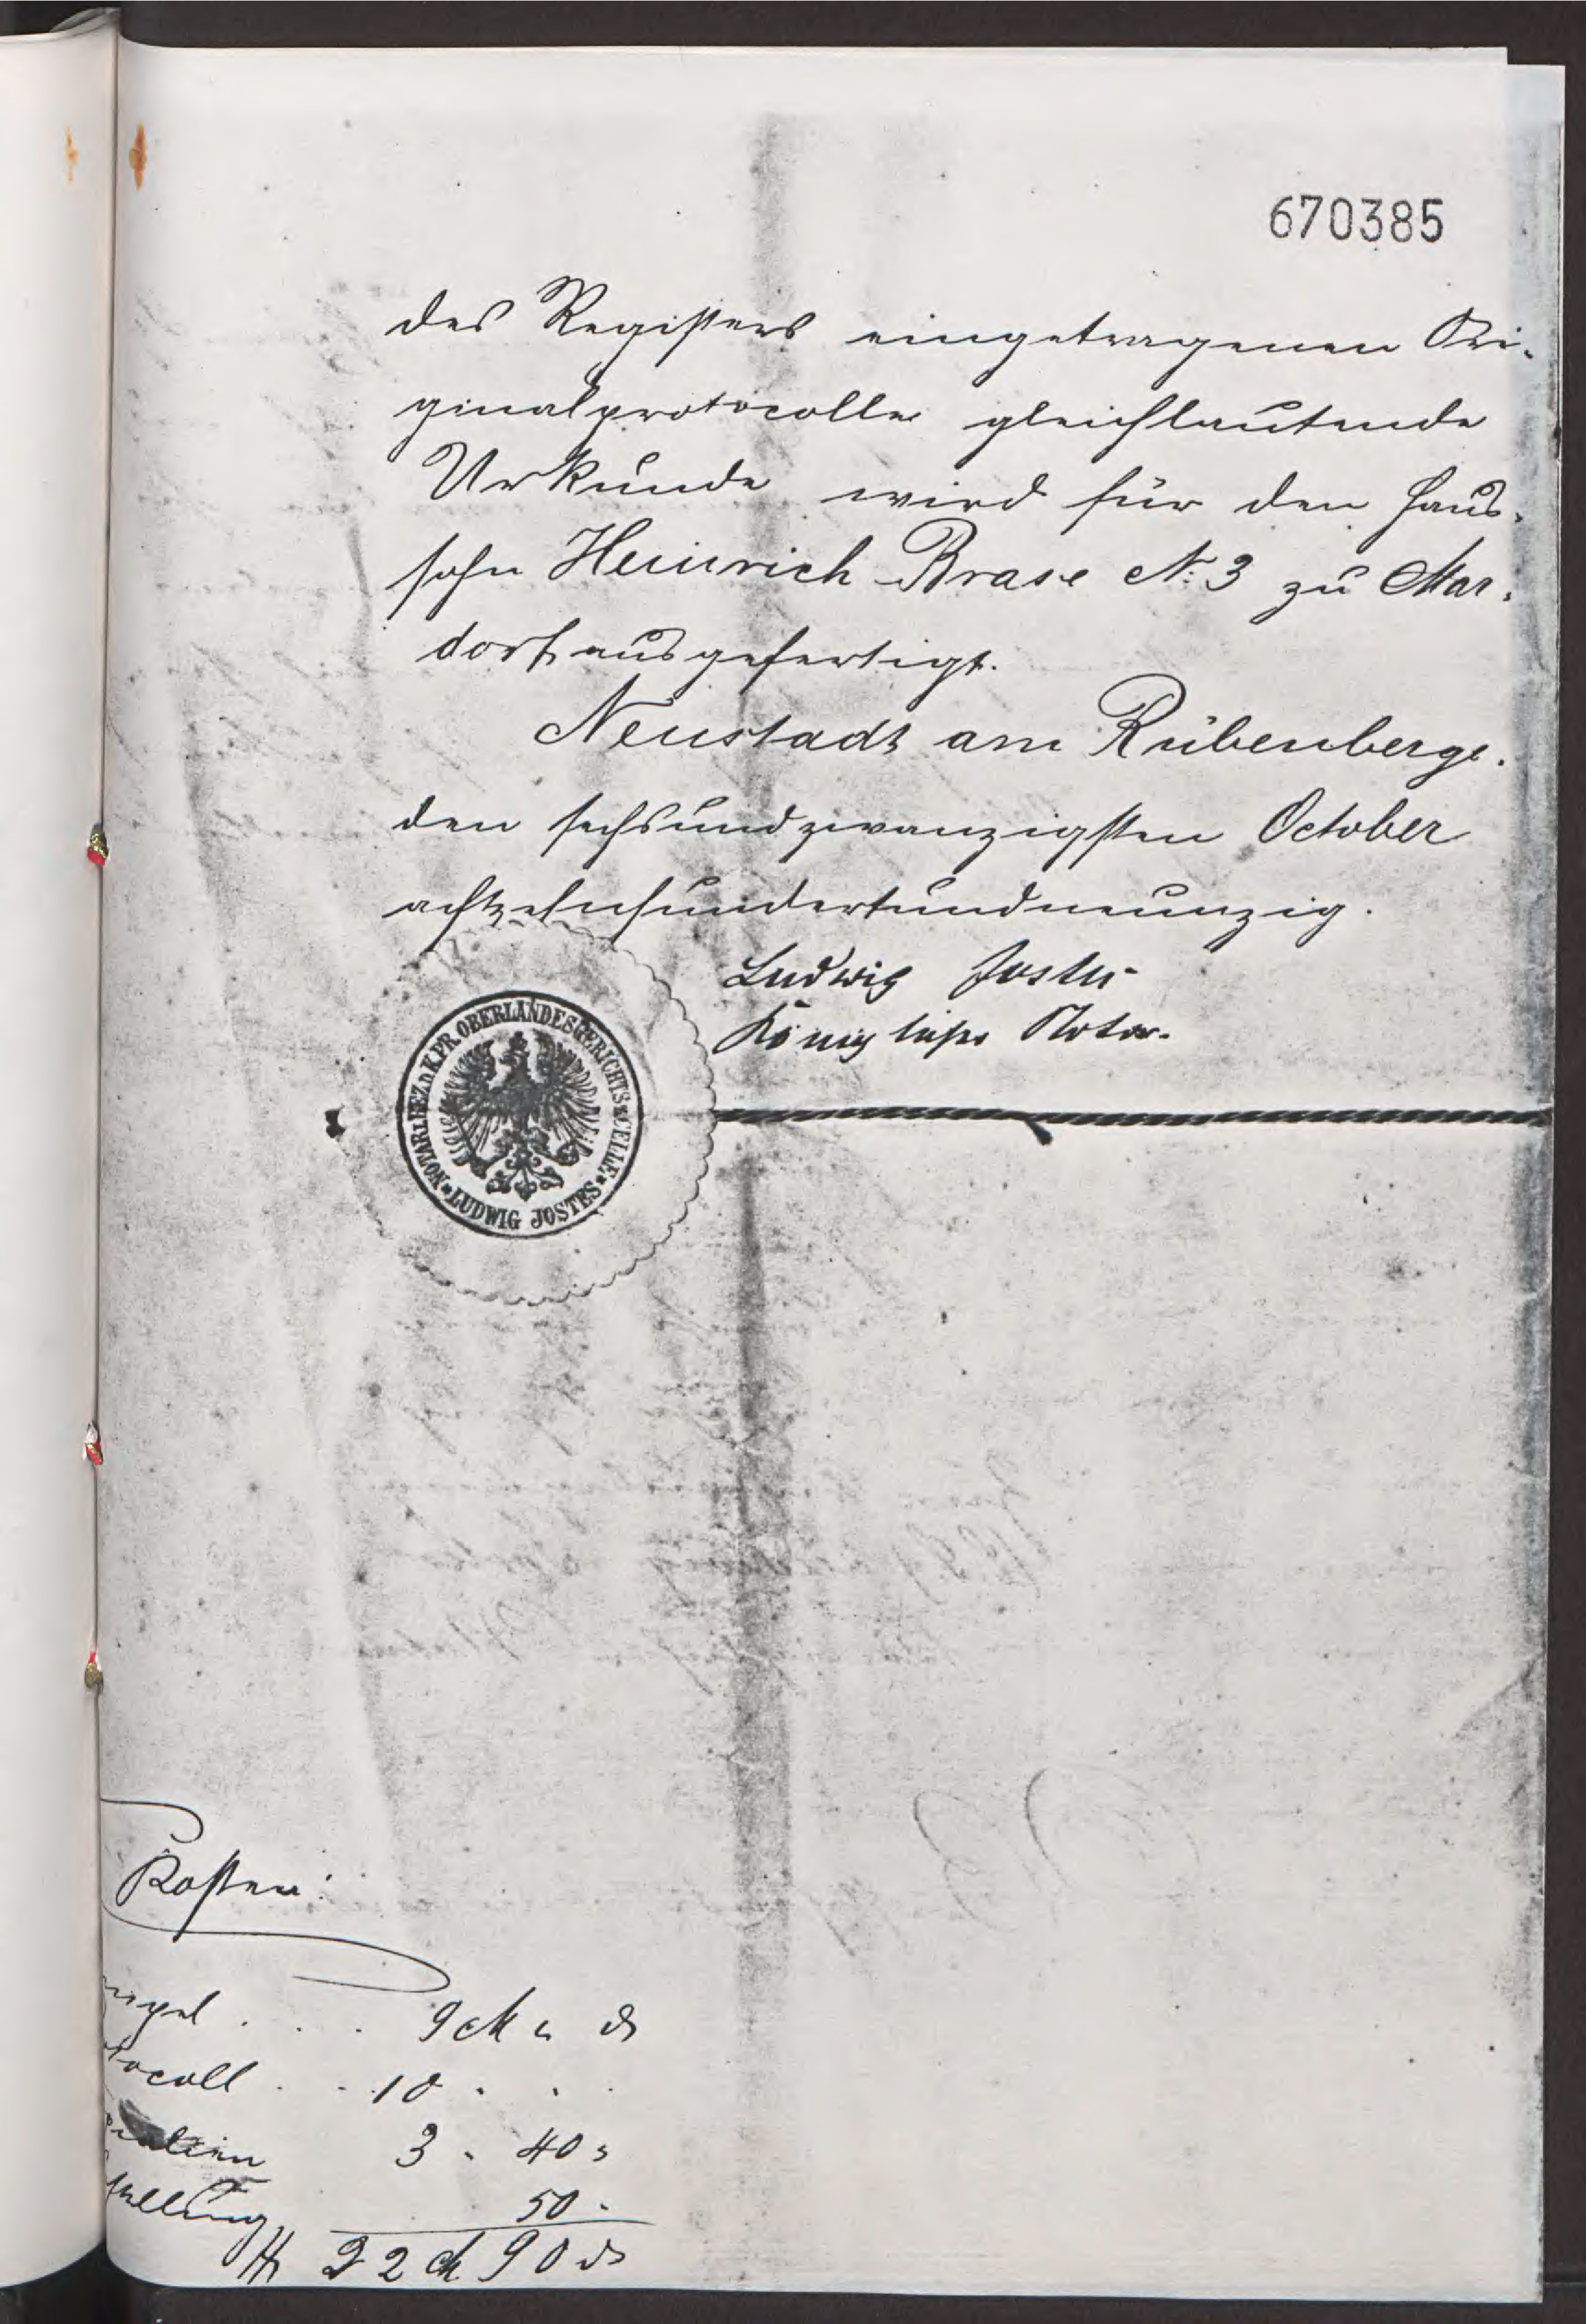 670385
des Registers eingetragenen Ori-
ginalprotocolle gleichlautende
Urkunde wird für den Haus-
sohn Heinrich Brase N: 3 zu Mar-
dorf ausgefertigt.
Neustadt am Rübenberge.
den sechsundzwanzigsten October
achtzehnhundertundneunzig.
Ludwig Jostes
Königlicher Notar.
NOTAR I. BEZ. D. K. PR. OBERLANDESGERICHTS CELLE
* LUDWIG JOSTES *
Kosten:
mpel . . . 9 M
tocoll . . 10
3 40
stellung 50
22 M 90